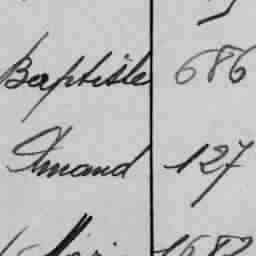 Baptiste 686
Amand 127
1682